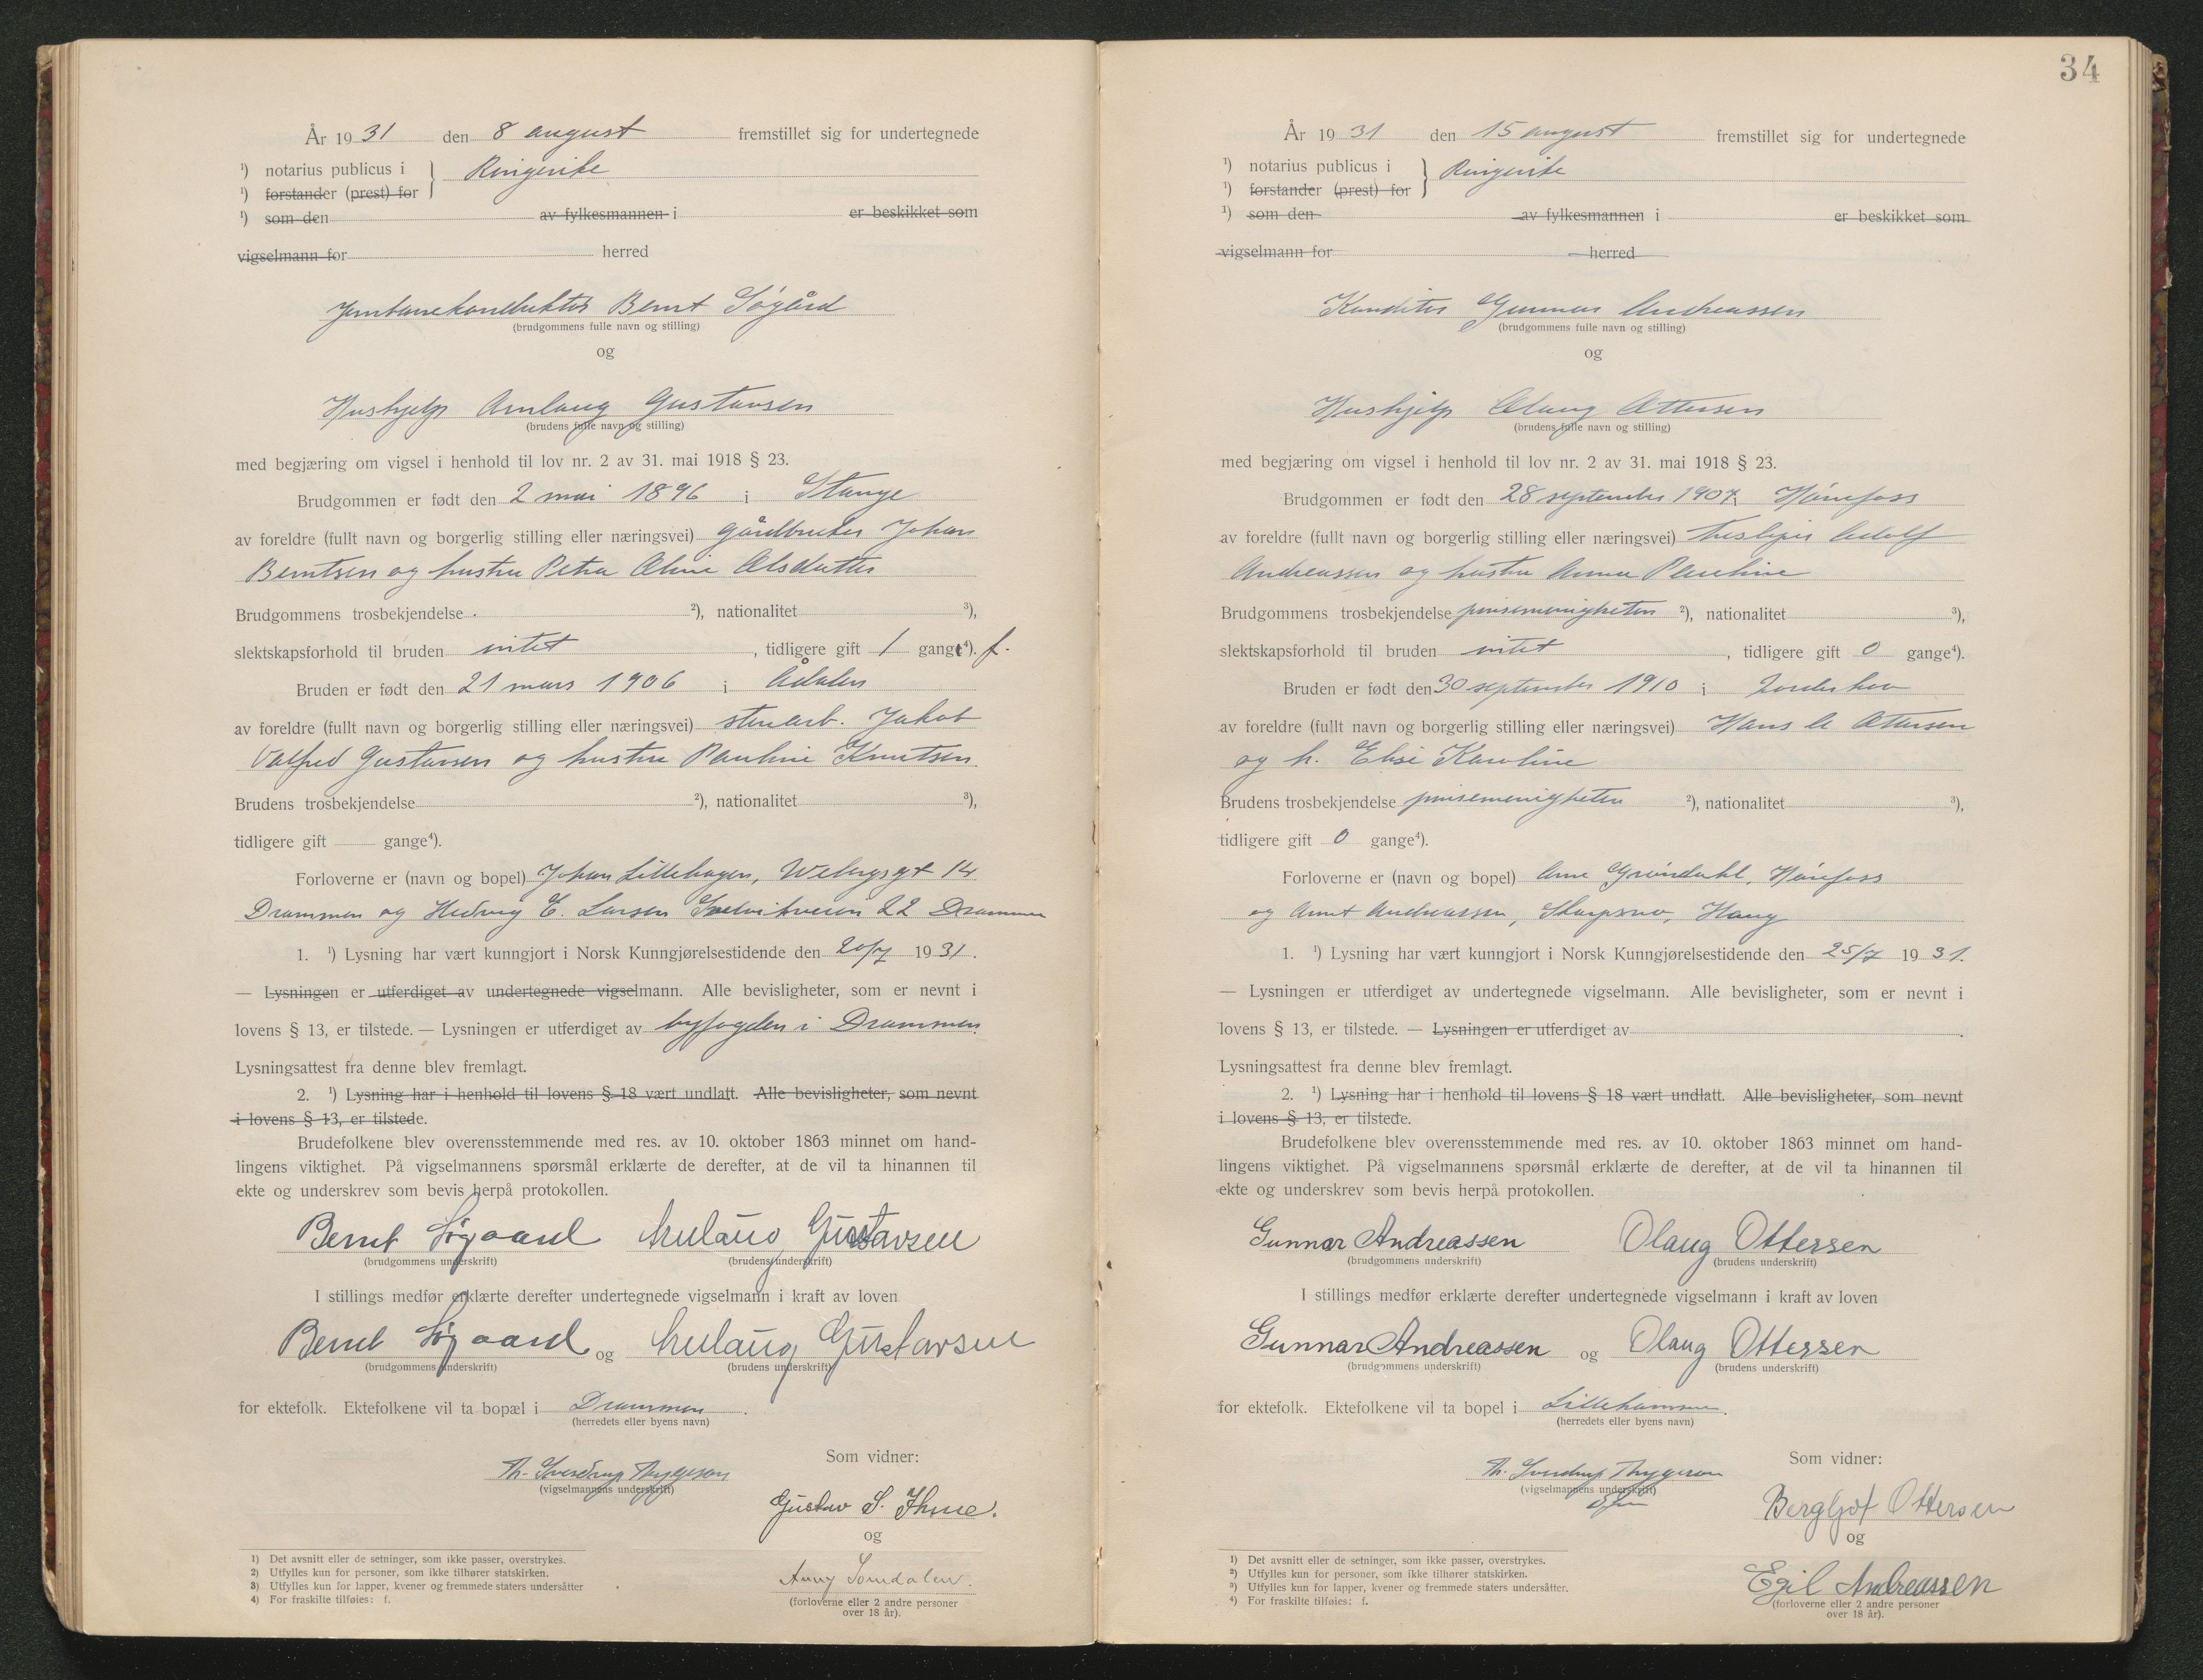 År 1931 den 8 august fremstillet sig for undertegnede
¹) notarius publicus i } Ringerike
¹) forstander (prest) for
¹) som den av fylkesmannen i er beskikket som
vigselmann for herred
Jernbanekonduktør Bernt Søgård
(brudgommens fulle navn og stilling)
og
Hushjelp Aslaug Gustavsen
(brudens fulle navn og stilling)
med begjæring om vigsel i henhold til lov nr. 2 av 31. mai 1918 § 23.
Brudgommen er født den 2 mai 1896 i Stange
av foreldre (fullt navn og borgerlig stilling eller næringsvei) gårdbruker Johan
Berntsen og hustru Petra Oline Olsdatter
Brudgommens trosbekjendelse ²), nationalitet ³),
slektskapsforhold til bruden intet, tidligere gift 1 gang⁴). f.
Bruden er født den 21 mars 1906 i Ådalen
av foreldre (fullt navn og borgerlig stilling eller næringsvei) stenarb. Jakob
Valfred Gustavsen og hustru Pauline Knutsen
Brudens trosbekjendelse ²), nationalitet ³),
tidligere gift gange⁴).
Forloverne er (navn og bopel) Johan Lillehagen, Webergsgt 14
Drammen og Hedvig E. Larsen Svelvikveien 22 Drammen
1. ¹) Lysning har vært kunngjort i Norsk Kunngjørelsestidende den 20/7 1931.
— Lysningen er utferdiget av undertegnede vigselmann. Alle bevisligheter, som er nevnt i
lovens § 13, er tilstede. — Lysningen er utferdiget av byfogden i Drammen.
Lysningsattest fra denne blev fremlagt.
2. ¹) Lysning har i henhold til lovens § 18 vært undlatt. Alle bevisligheter, som nevnt
i lovens § 13, er tilstede.
Brudefolkene blev overensstemmende med res. av 10. oktober 1863 minnet om hand-
lingens viktighet. På vigselmannens spørsmål erklærte de derefter, at de vil ta hinannen til
ekte og underskrev som bevis herpå protokollen.
Bernt Søgaard Aslaug Gustavsen
(brudgommens underskrift) (brudens underskrift)
I stillings medfør erklærte derefter undertegnede vigselmann i kraft av loven
Bernt Søgaard og Aslaug Gustavsen
(brudgommens underskrift) (brudens underskrift)
for ektefolk. Ektefolkene vil ta bopæl i Drammen.
(herredets eller byens navn)
Th. Sverdrup Thygeson
(vigselmannens underskrift)
Som vidner:
Gustav S. Ihme.
og
Anny Somdalen.
(forloverne eller 2 andre personer
over 18 år).
1) Det avsnitt eller de setninger, som ikke passer, overstrykes.
2) Utfylles kun for personer, som ikke tilhører statskirken.
3) Utfylles kun for lapper, kvener og fremmede staters undersåtter
4) For fraskilte tilføies: f.
34
År 1931 den 15 august fremstillet sig for undertegnede
¹) notarius publicus i } Ringerike
¹) forstander (prest) for
¹) som den av fylkesmannen i er beskikket som
vigselmann for herred
Konditor Gunnar Andreassen
(brudgommens fulle navn og stilling)
og
Hushjelp Olaug Ottersen
(brudens fulle navn og stilling)
med begjæring om vigsel i henhold til lov nr. 2 av 31. mai 1918 § 23.
Brudgommen er født den 28 september 1907 i Hønefoss
av foreldre (fullt navn og borgerlig stilling eller næringsvei) tresliper Adolf
Andreassen og hustru Anna Pauline
Brudgommens trosbekjendelse pinsemenigheten ²), nationalitet ³),
slektskapsforhold til bruden intet, tidligere gift 0 gange⁴).
Bruden er født den 30 september 1910 i Norderhov
av foreldre (fullt navn og borgerlig stilling eller næringsvei) Hans A Ottersen
og h. Elise Karoline
Brudens trosbekjendelse pinsemenigheten ²), nationalitet ³),
tidligere gift 0 gange⁴).
Forloverne er (navn og bopel) Arne Grøndahl, Hønefoss
og Arnt Andreassen, Skarpsno, Haug
1. ¹) Lysning har vært kunngjort i Norsk Kunngjørelsestidende den 25/7 1931.
— Lysningen er utferdiget av undertegnede vigselmann. Alle bevisligheter, som er nevnt i
lovens § 13, er tilstede. — Lysningen er utferdiget av .
Lysningsattest fra denne blev fremlagt.
2. ¹) Lysning har i henhold til lovens § 18 vært undlatt. Alle bevisligheter, som nevnt
i lovens § 13, er tilstede.
Brudefolkene blev overensstemmende med res. av 10. oktober 1863 minnet om hand-
lingens viktighet. På vigselmannens spørsmål erklærte de derefter, at de vil ta hinannen til
ekte og underskrev som bevis herpå protokollen.
Gunnar Andreassen Olaug Ottersen
(brudgommens underskrift) (brudens underskrift)
I stillings medfør erklærte derefter undertegnede vigselmann i kraft av loven
Gunnar Andreassen og Olaug Ottersen
(brudgommens underskrift) (brudens underskrift)
for ektefolk. Ektefolkene vil ta bopel i Lillehammer.
(herredets eller byens navn)
Th. Sverdrup Thygeson
(vigselmannens underskrift)
Som vidner:
Bergljot Ottersen
og
Egil Andreassen
(forloverne eller 2 andre personer
over 18 år).
1) Det avsnitt eller de setninger, som ikke passer, overstrykes.
2) Utfylles kun for personer, som ikke tilhører statskirken.
3) Utfylles kun for lapper, kvener og fremmede staters undersåtter.
4) For fraskilte tilføies: f.